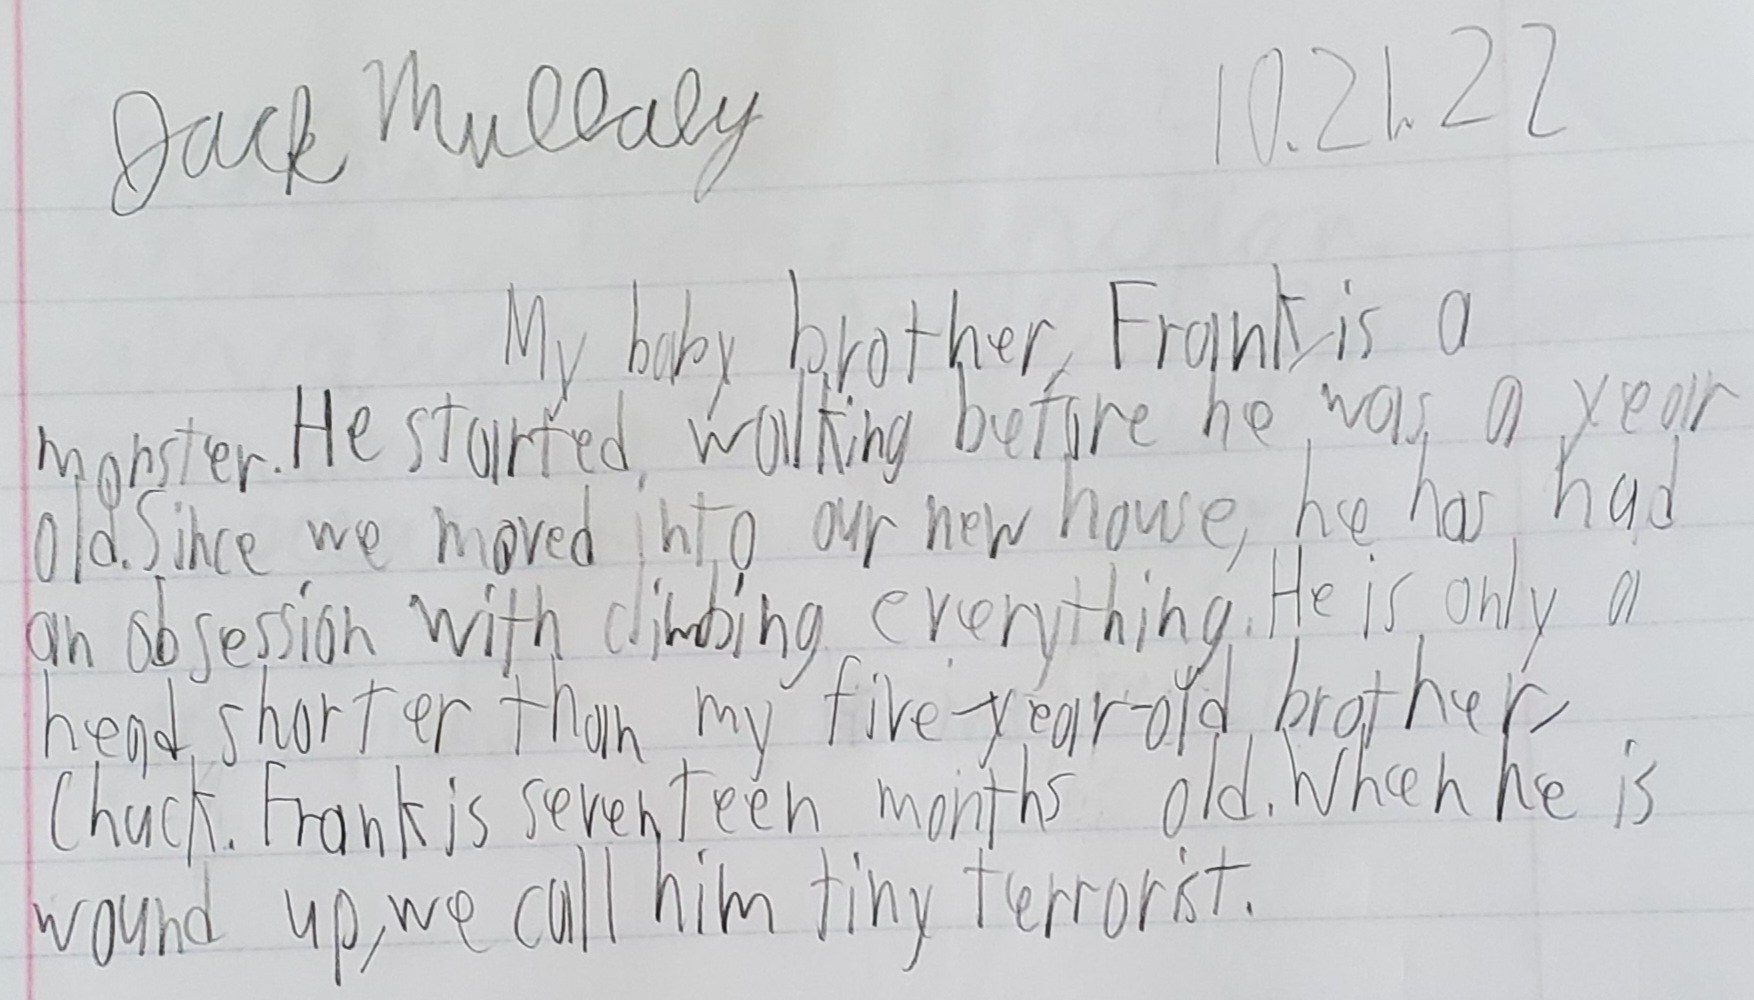 Jack Mullaly 10.21.22
My baby brother, Frank, is a
monster. He started walking before he was a year
old. Since we moved into our new house, he has had
an obsession with climbing everything. He is only a
head shorter than my five-year-old brother,
Chuck. Frank is seventeen months old. When he is
wound up, we call him tiny terrorist.